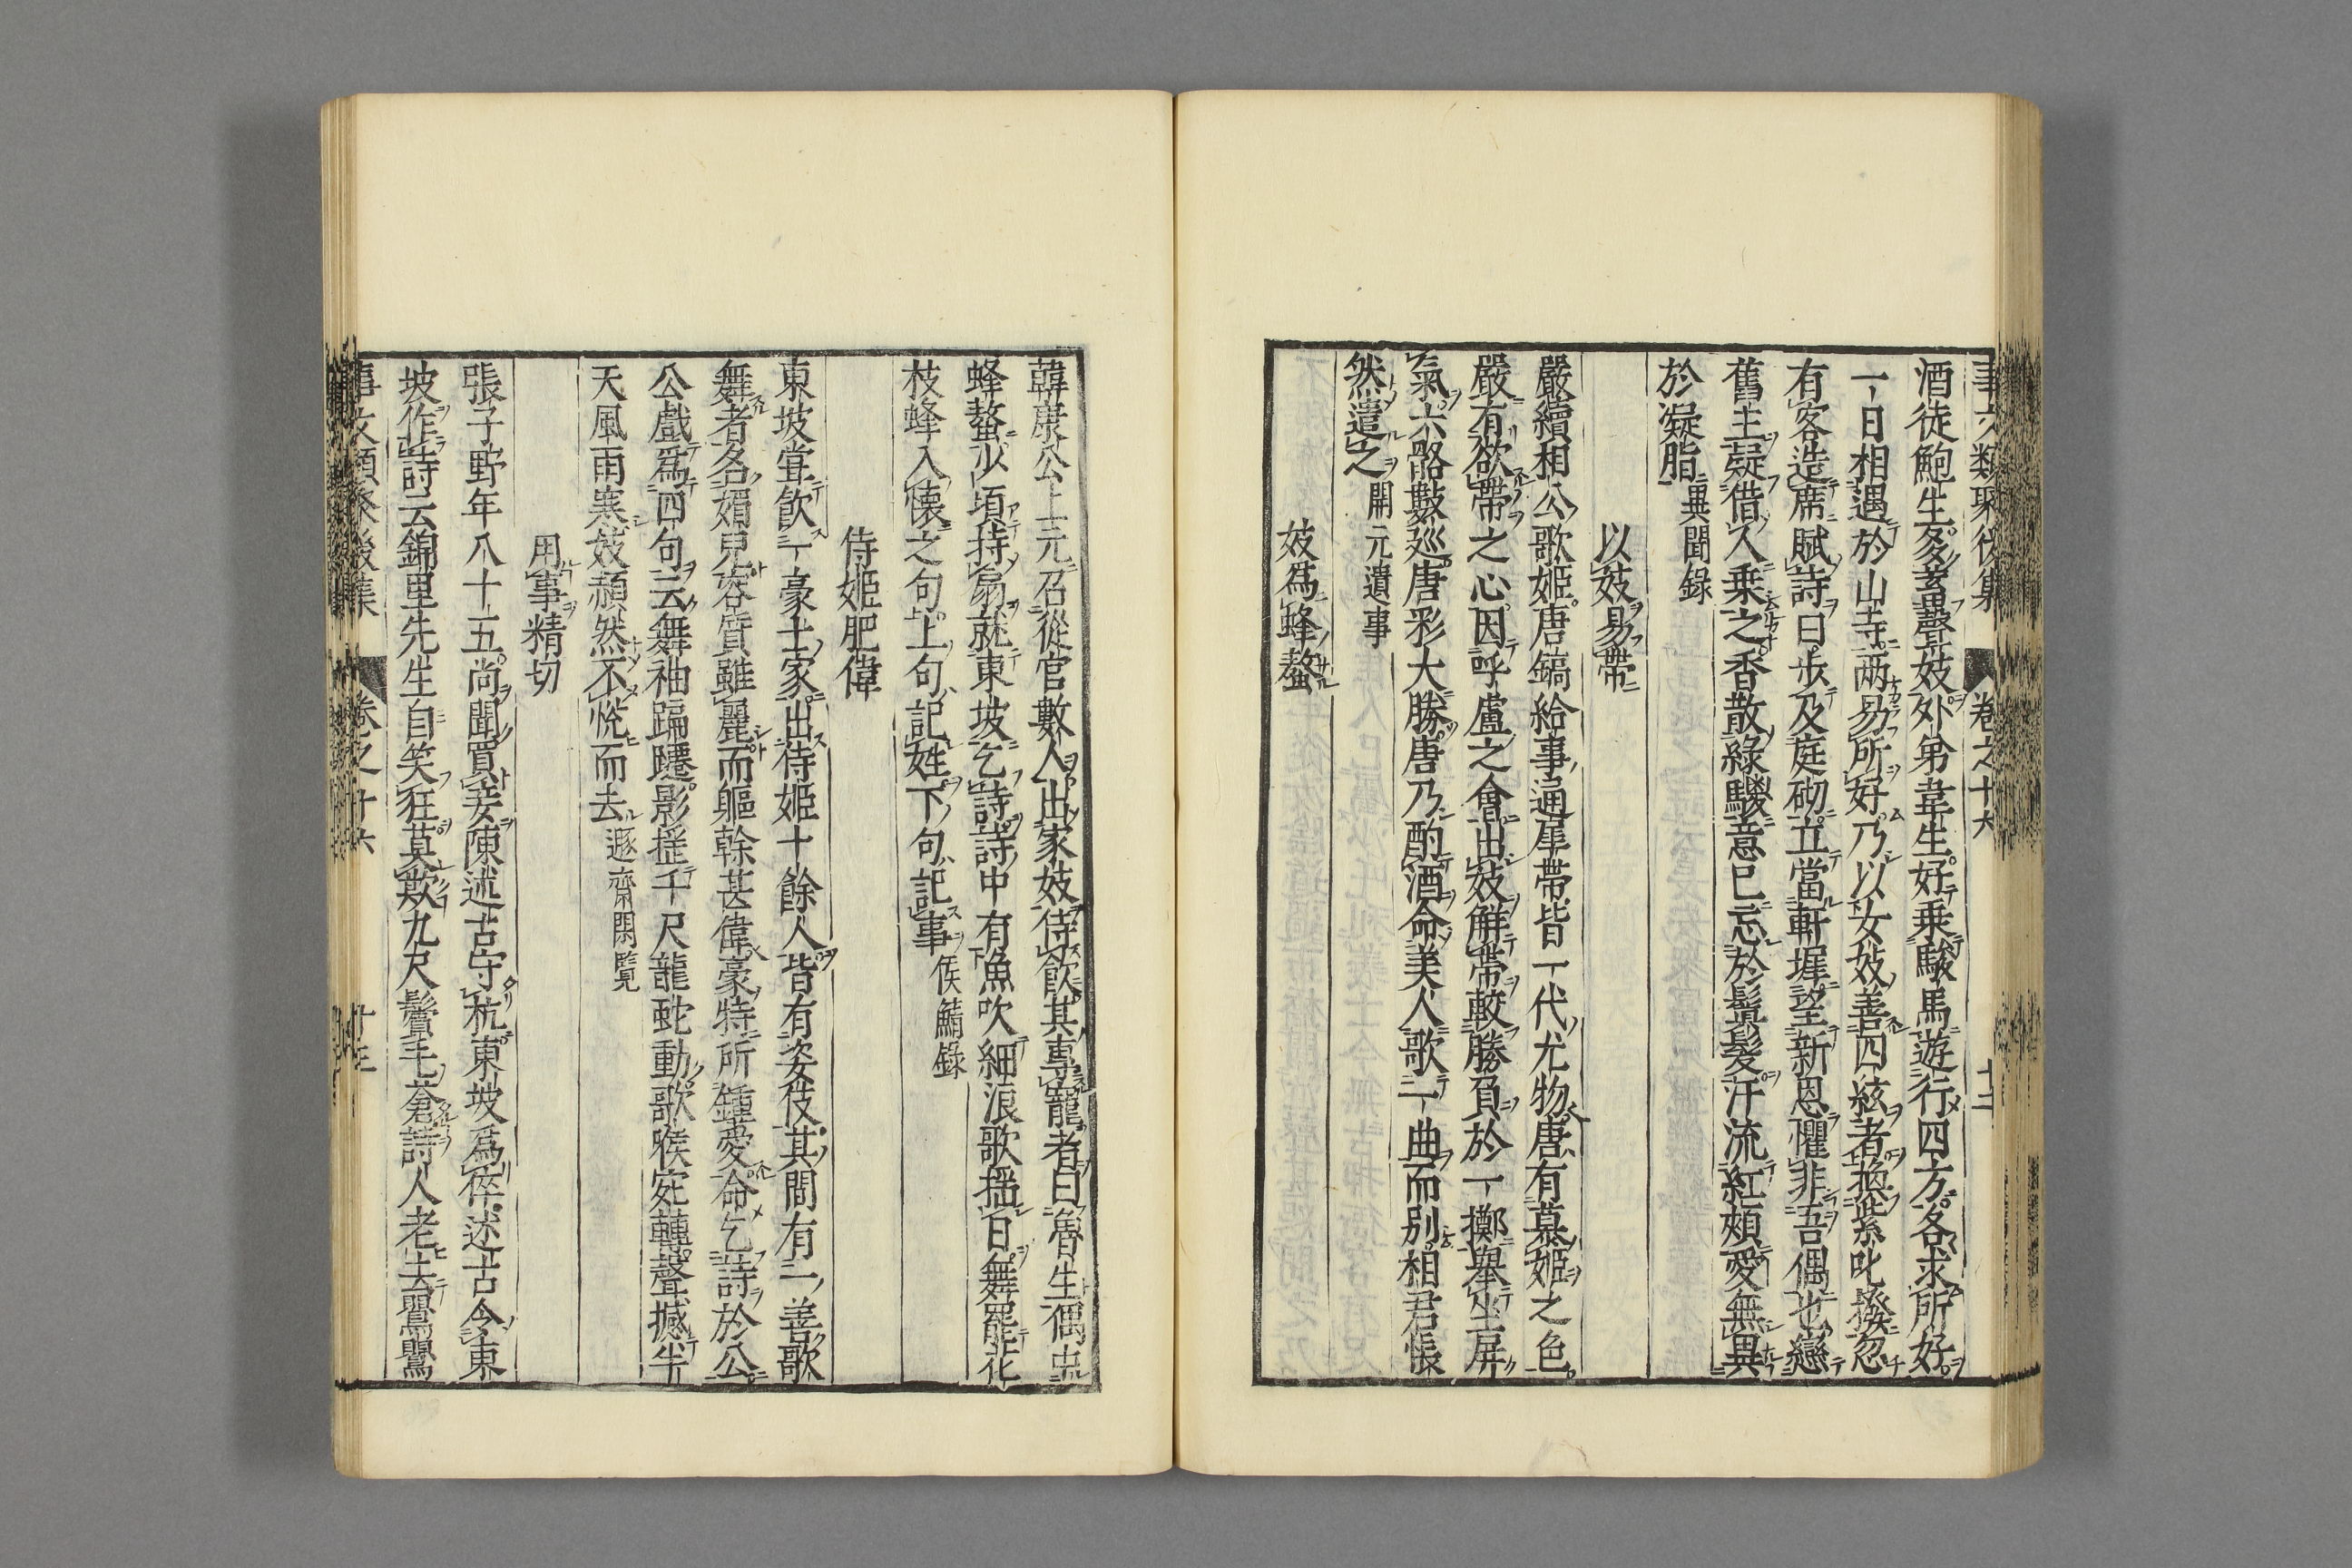 酒徒鮑生多蓄聲妓外弟韋生好乗駿馬遊行四方各求所好
一日相遇於山寺兩易所好乃以女妓善四絃者換紫叱撥忽
有客造席賦詩曰歩及庭砌立當軒墀望新恩懼非吾偶也戀
舊主疑借人乗之香散綠騣意已忘於鬢髮汗流紅頰愛無異
於凝脂 異聞錄
以妓易帶
嚴續相公歌姬唐鎬給事通犀帶皆一代尤物唐有慕姬之色
嚴有欲帶之心因呼盧之會出妓解帶較勝負於一擲舉坐屏
氣六骰數巡唐彩大勝唐乃酌酒命美人歌一曲而別相君悵
然遣之 開元遺事
妓爲蜂螫
韓康公上元召從官數人出家妓侍飮其專寵者曰魯生偶虫
蜂螫少頃持扇就東坡乞詩詩中有魚吹細浪歌搖日舞罷花
枝蜂入懷之句上句記姓下句記事 侯鯖錄
侍姬肥偉
東坡甞飮一豪士家出侍姬十餘人皆有姿伎其間有一善歌
舞者名媚兒容質雖麗而軀幹甚偉豪特所鍾愛命乞詩於公
公戲爲四句云舞袖蹁躚影揺千尺龍蛇動歌喉宛轉聲撼半
天風雨寒妓頳然不悅而去 遯齋閑覧
用事精切
張子野年八十五尚聞買妾陳述古守杭東坡爲倅述古令東
坡作詩云錦里先生自笑狂莫欺九尺鬢毛蒼詩人老去鸎鸎